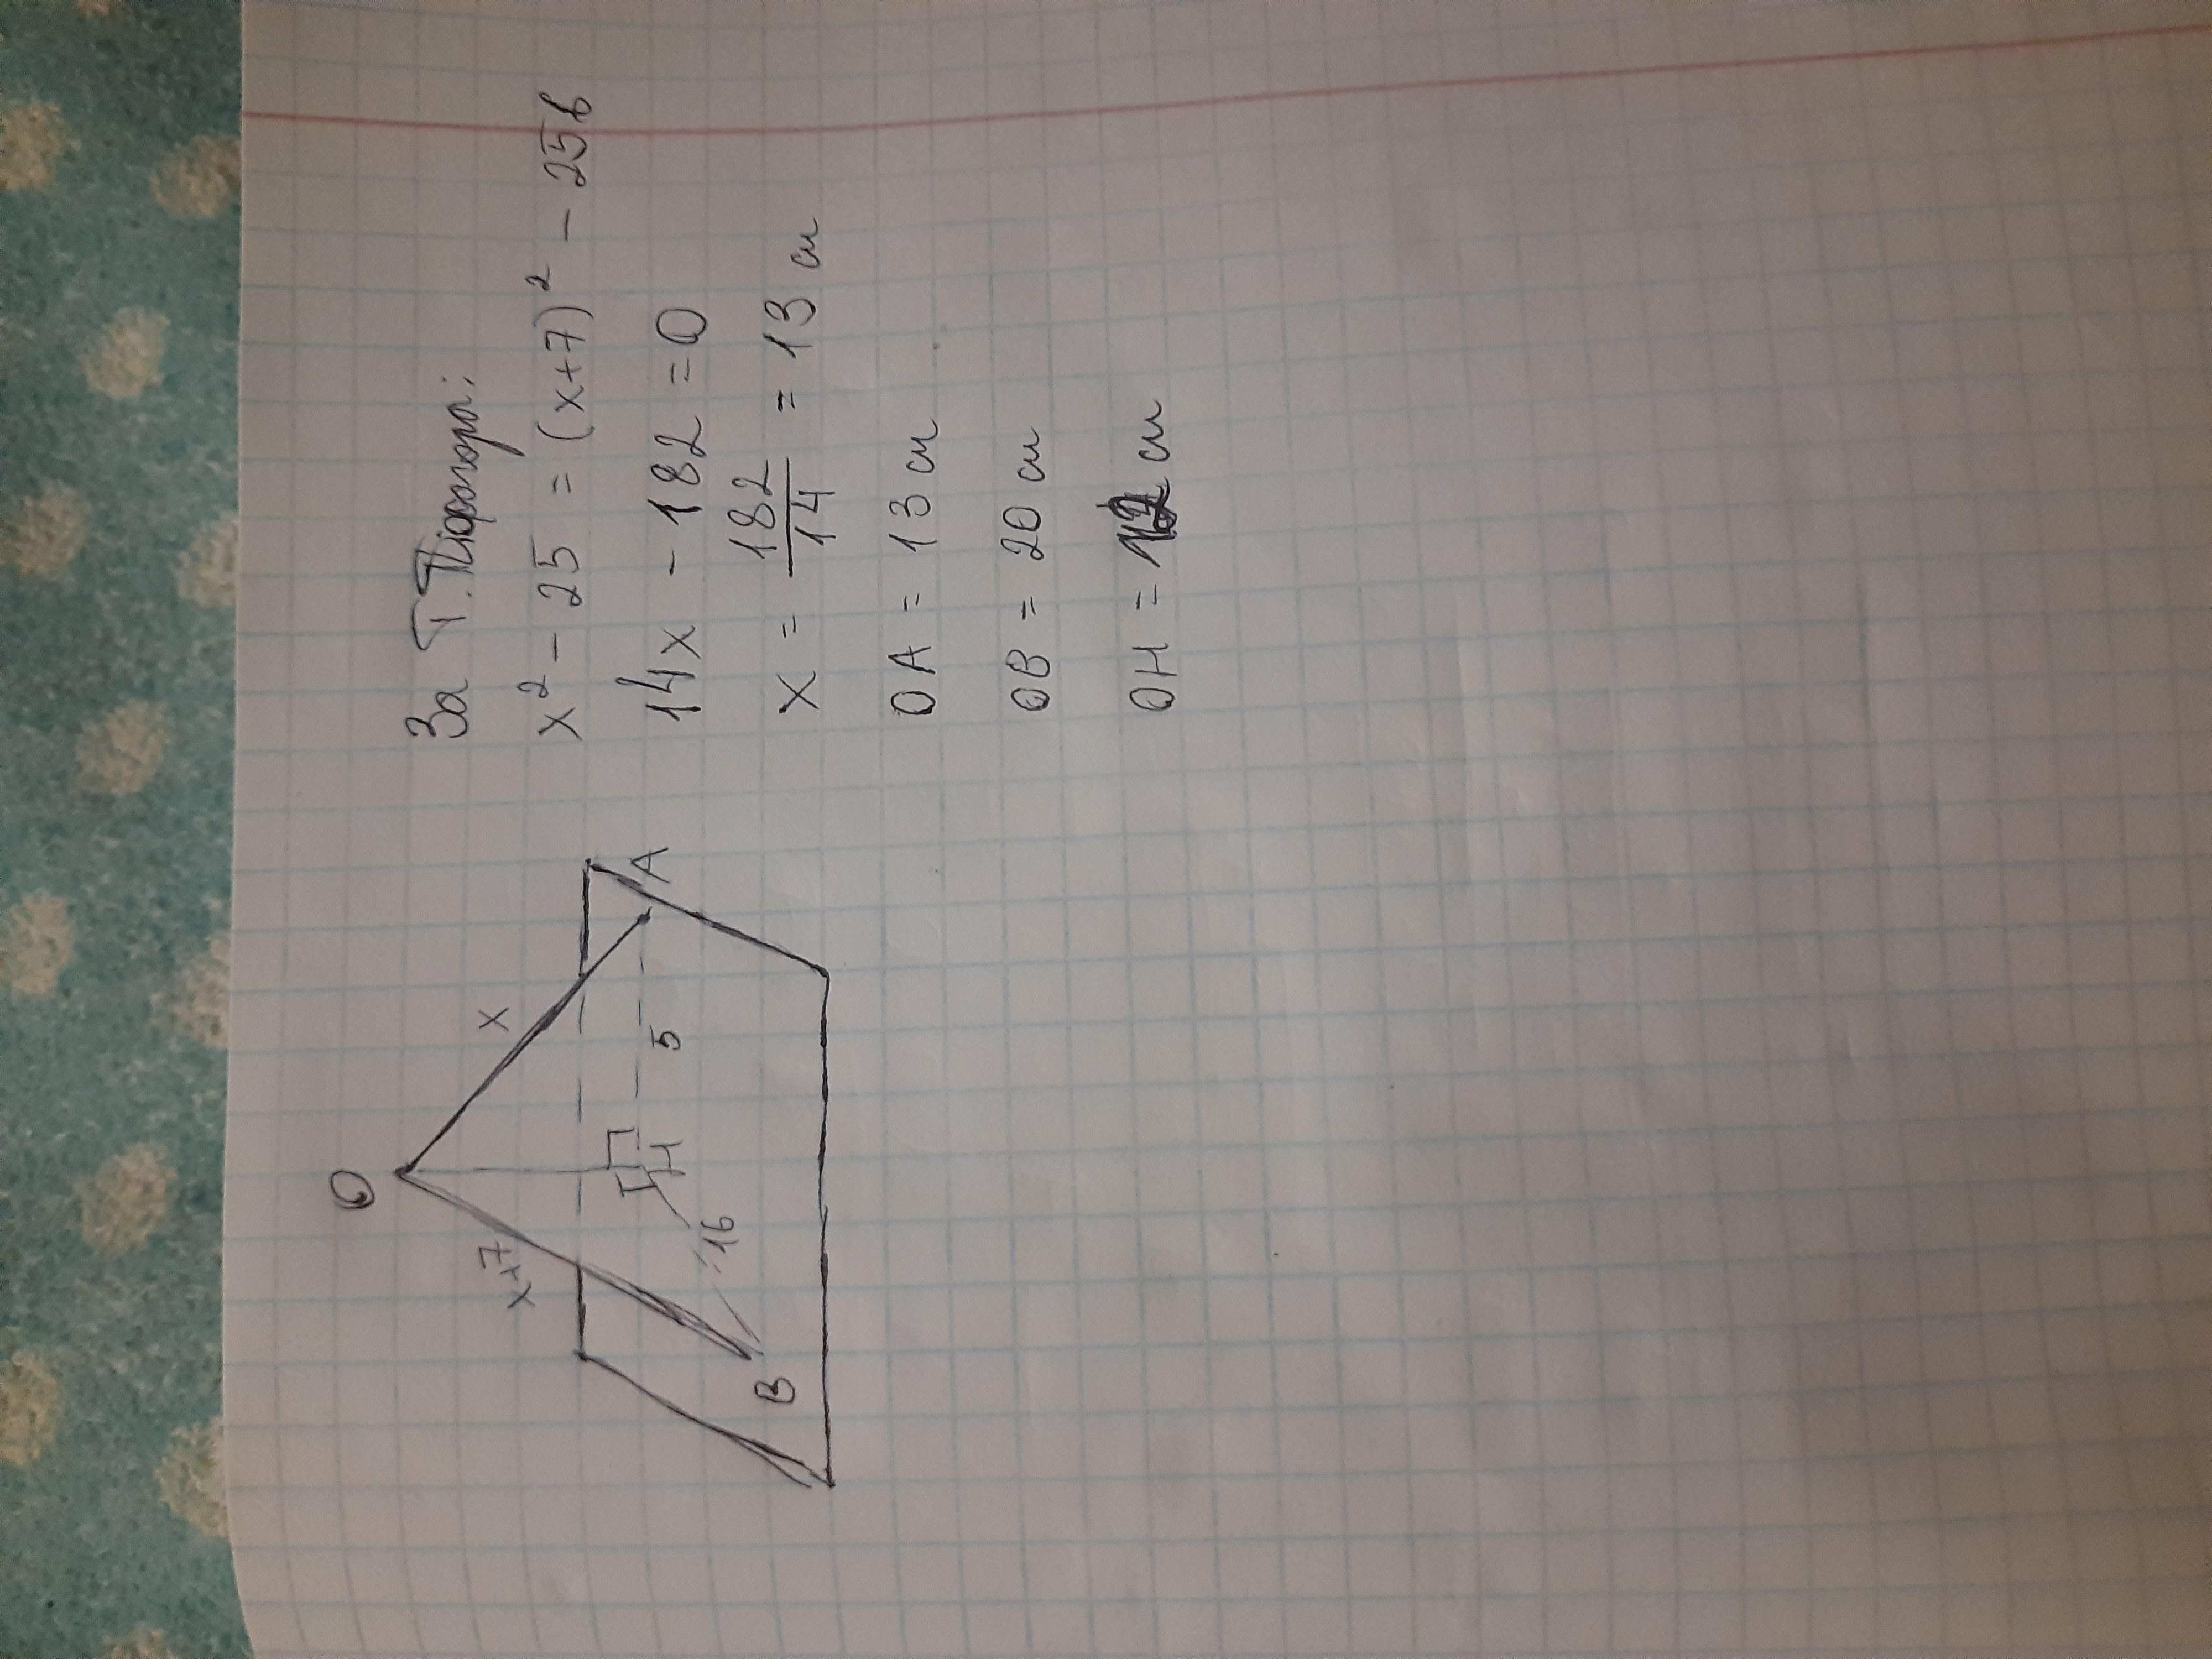 O
x+7
x
16
H
5
B
A
За Т. Піфагора:
x² - 25 = (x+7)² - 256
14x - 182 = 0
x = 182/14 = 13 см
OA = 13 см
OB = 20 см
OH = 12 см